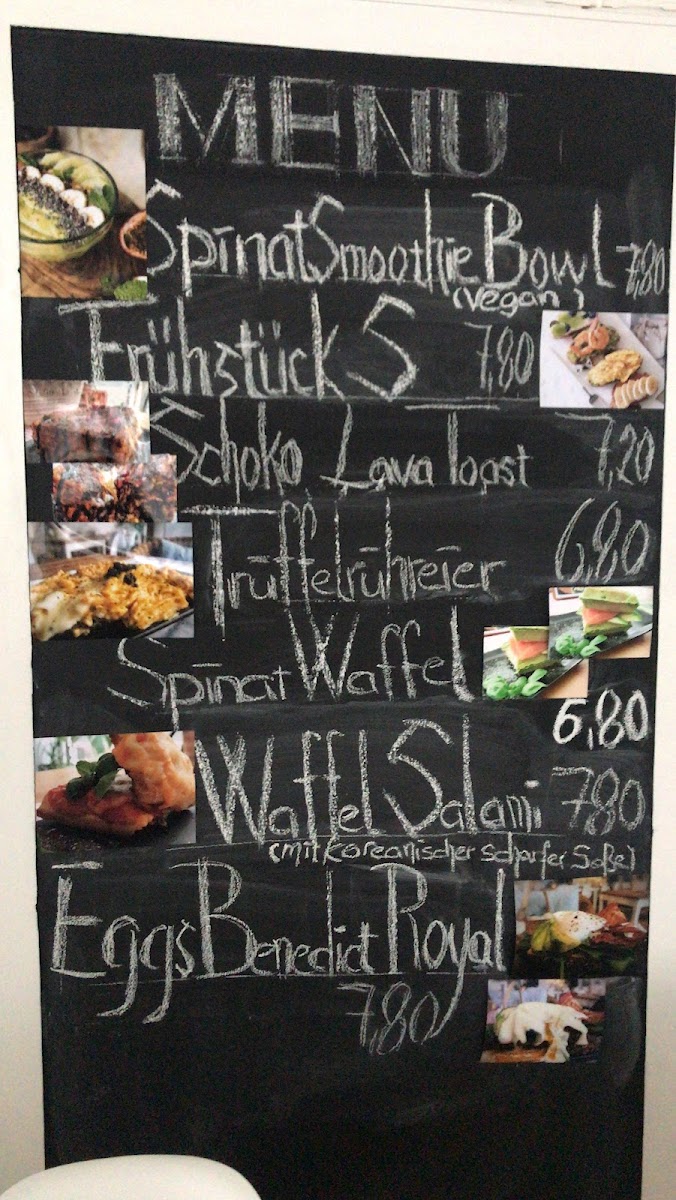 MENU
Spinat Smoothie Bowl 7,80
(vegan)
Frühstück S 7,80
Schoko Lava Toast 7,20
Trüffelrühreier 6,80
Spinat Waffel
6,80
Waffel Salami 7,80
(mit koreanischer scharfer Soße)
Eggs Benedict Royal
7,80